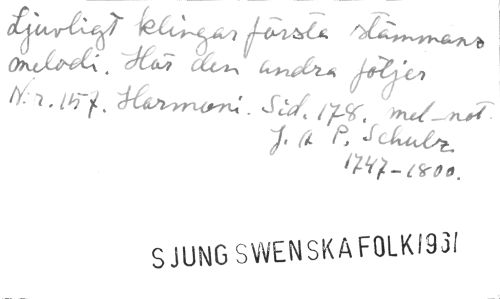 Ljuvligt klingar första stämmans
melodi. Hör den andra följer
N:r. 157. Harmoni. Sid. 178. mel-not.
J. A P. Schulz
1747-1800.
SJUNG SWENSKA FOLK 1931